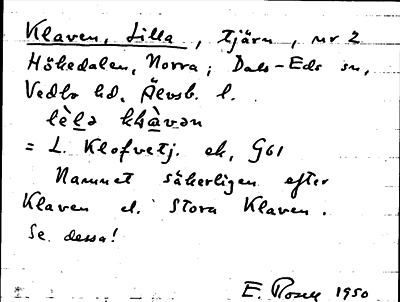 Klaven, Lilla, tjärn, nr 2
Hökedalen, Norra; Dals-Eds sn,
Vedbo hd, Älvsb. l.
= L. Klofvetj. ek, G61
Namnet säkerligen efter
Klaven el. Stora Klaven.
Se dessa!
E. Rosell 1950